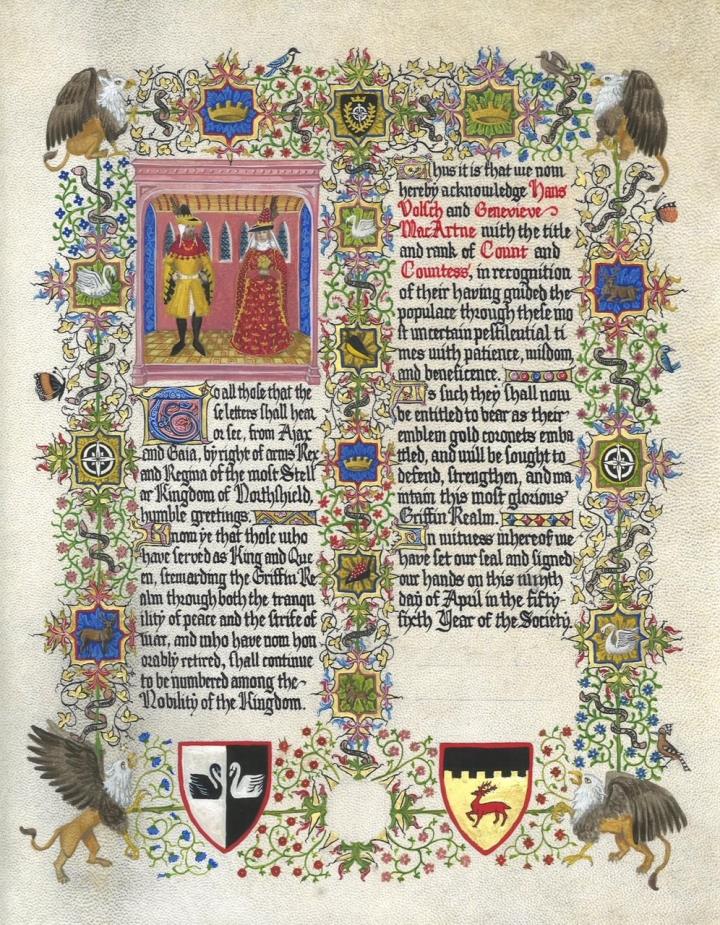 To all those that the
se letters shall hear
or see, from Ajax
and Gaia, by right of arms Rex
and Regina of the most Stell
ar Kingdom of Northshield,
humble greetings.
Know ye that those who
have served as King and Que
en, stewarding the Griffin Re
alm through both the tranqu
ility of peace and the strife of
war, and who have now hon
orably retired, shall continue
to be numbered among the
Nobility of the Kingdom.
Thus it is that we now
hereby acknowledge Hans
Volsch and Genevieve
MacArtne with the title
and rank of Count and
Countess, in recognition
of their having guided the
populace through these mo
st uncertain pestilential ti
mes with patience, wisdom,
and beneficence.
As such they shall now
be entitled to bear as their
emblem gold coronets emba
ttled, and will be sought to
defend, strengthen, and ma
intain this most glorious
Griffin Realm.
In witness whereof we
have set our seal and signed
our hands on this ninth
day of April in the fifty
sixth Year of the Society.